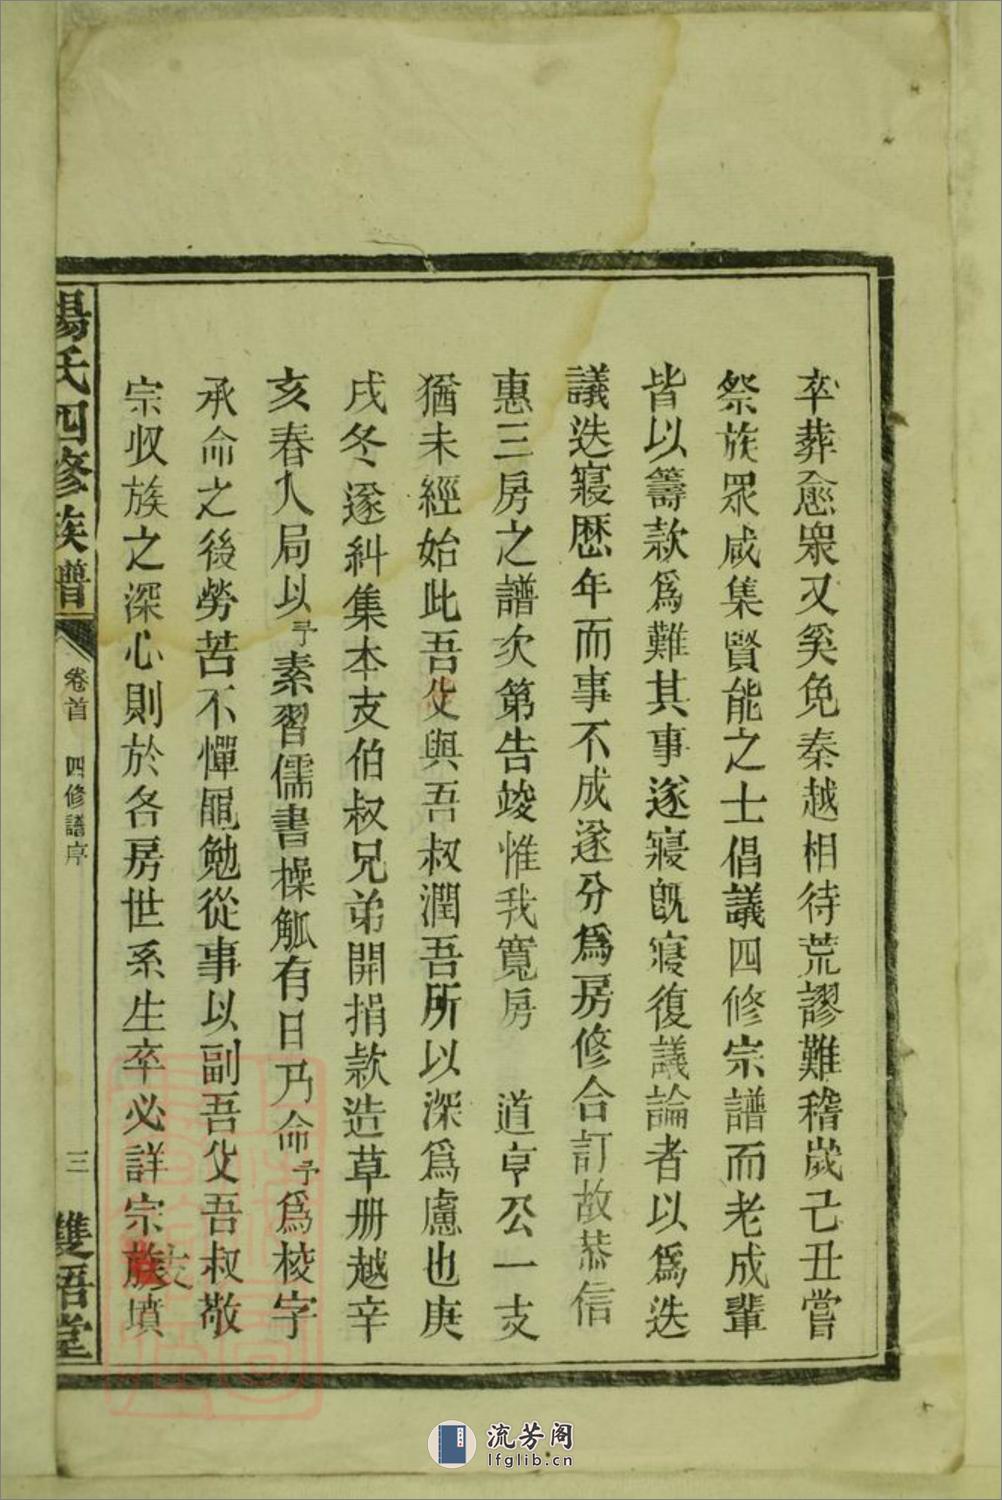 卒葬愈衆又奚免秦越相待荒謬難稽歲己丑嘗
祭族眾咸集賢能之士倡議四修宗譜而老成輩
皆以籌款爲難其事遂寢旣寢復議論者以爲迭
議迭寢歷年而事不成遂分爲房修合訂故恭信
惠三房之譜次第告竣惟我寬房 道亨公一支
猶未經始此吾父與吾叔潤吾所以深爲慮也庚
戌冬遂糾集本支伯叔兄弟開捐款造草册越辛
亥春入局以予素習儒書操觚有日乃命予爲棱字
承命之後勞苦不憚黽勉從事以副吾父吾叔敬
宗收族之深心則於各房世系生卒必詳宗族墳
支
氏四修族譜
卷首 四修譜序
三
雙梧堂
流芳阁
lfglib.cn